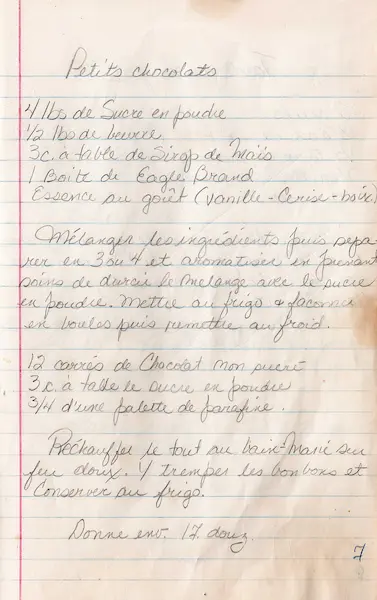 Petits chocolats
4 lbs de Sucre en poudre
1/2 lbs de beurre
3 c. à table de Sirop de Maïs
1 Boite de Eagle Brand
Essence au goût (vanille-Cerise-
Mélanger les ingrédients puis sépa-
rer en 3 ou 4 et aromatiser en prenant
soins de durcir le mélange avec le sucre
en poudre. Mettre au frigo & façonner
en boules puis remettre au froid.
12 carrés de Chocolat non sucré
3 c. à table de sucre en poudre
3/4 d'une palette de parafine.
Réchauffer le tout au bain-Marie sur
feu doux. Y tremper les bonbons et
Conserver au frigo.
Donne env. 12 douz.
7